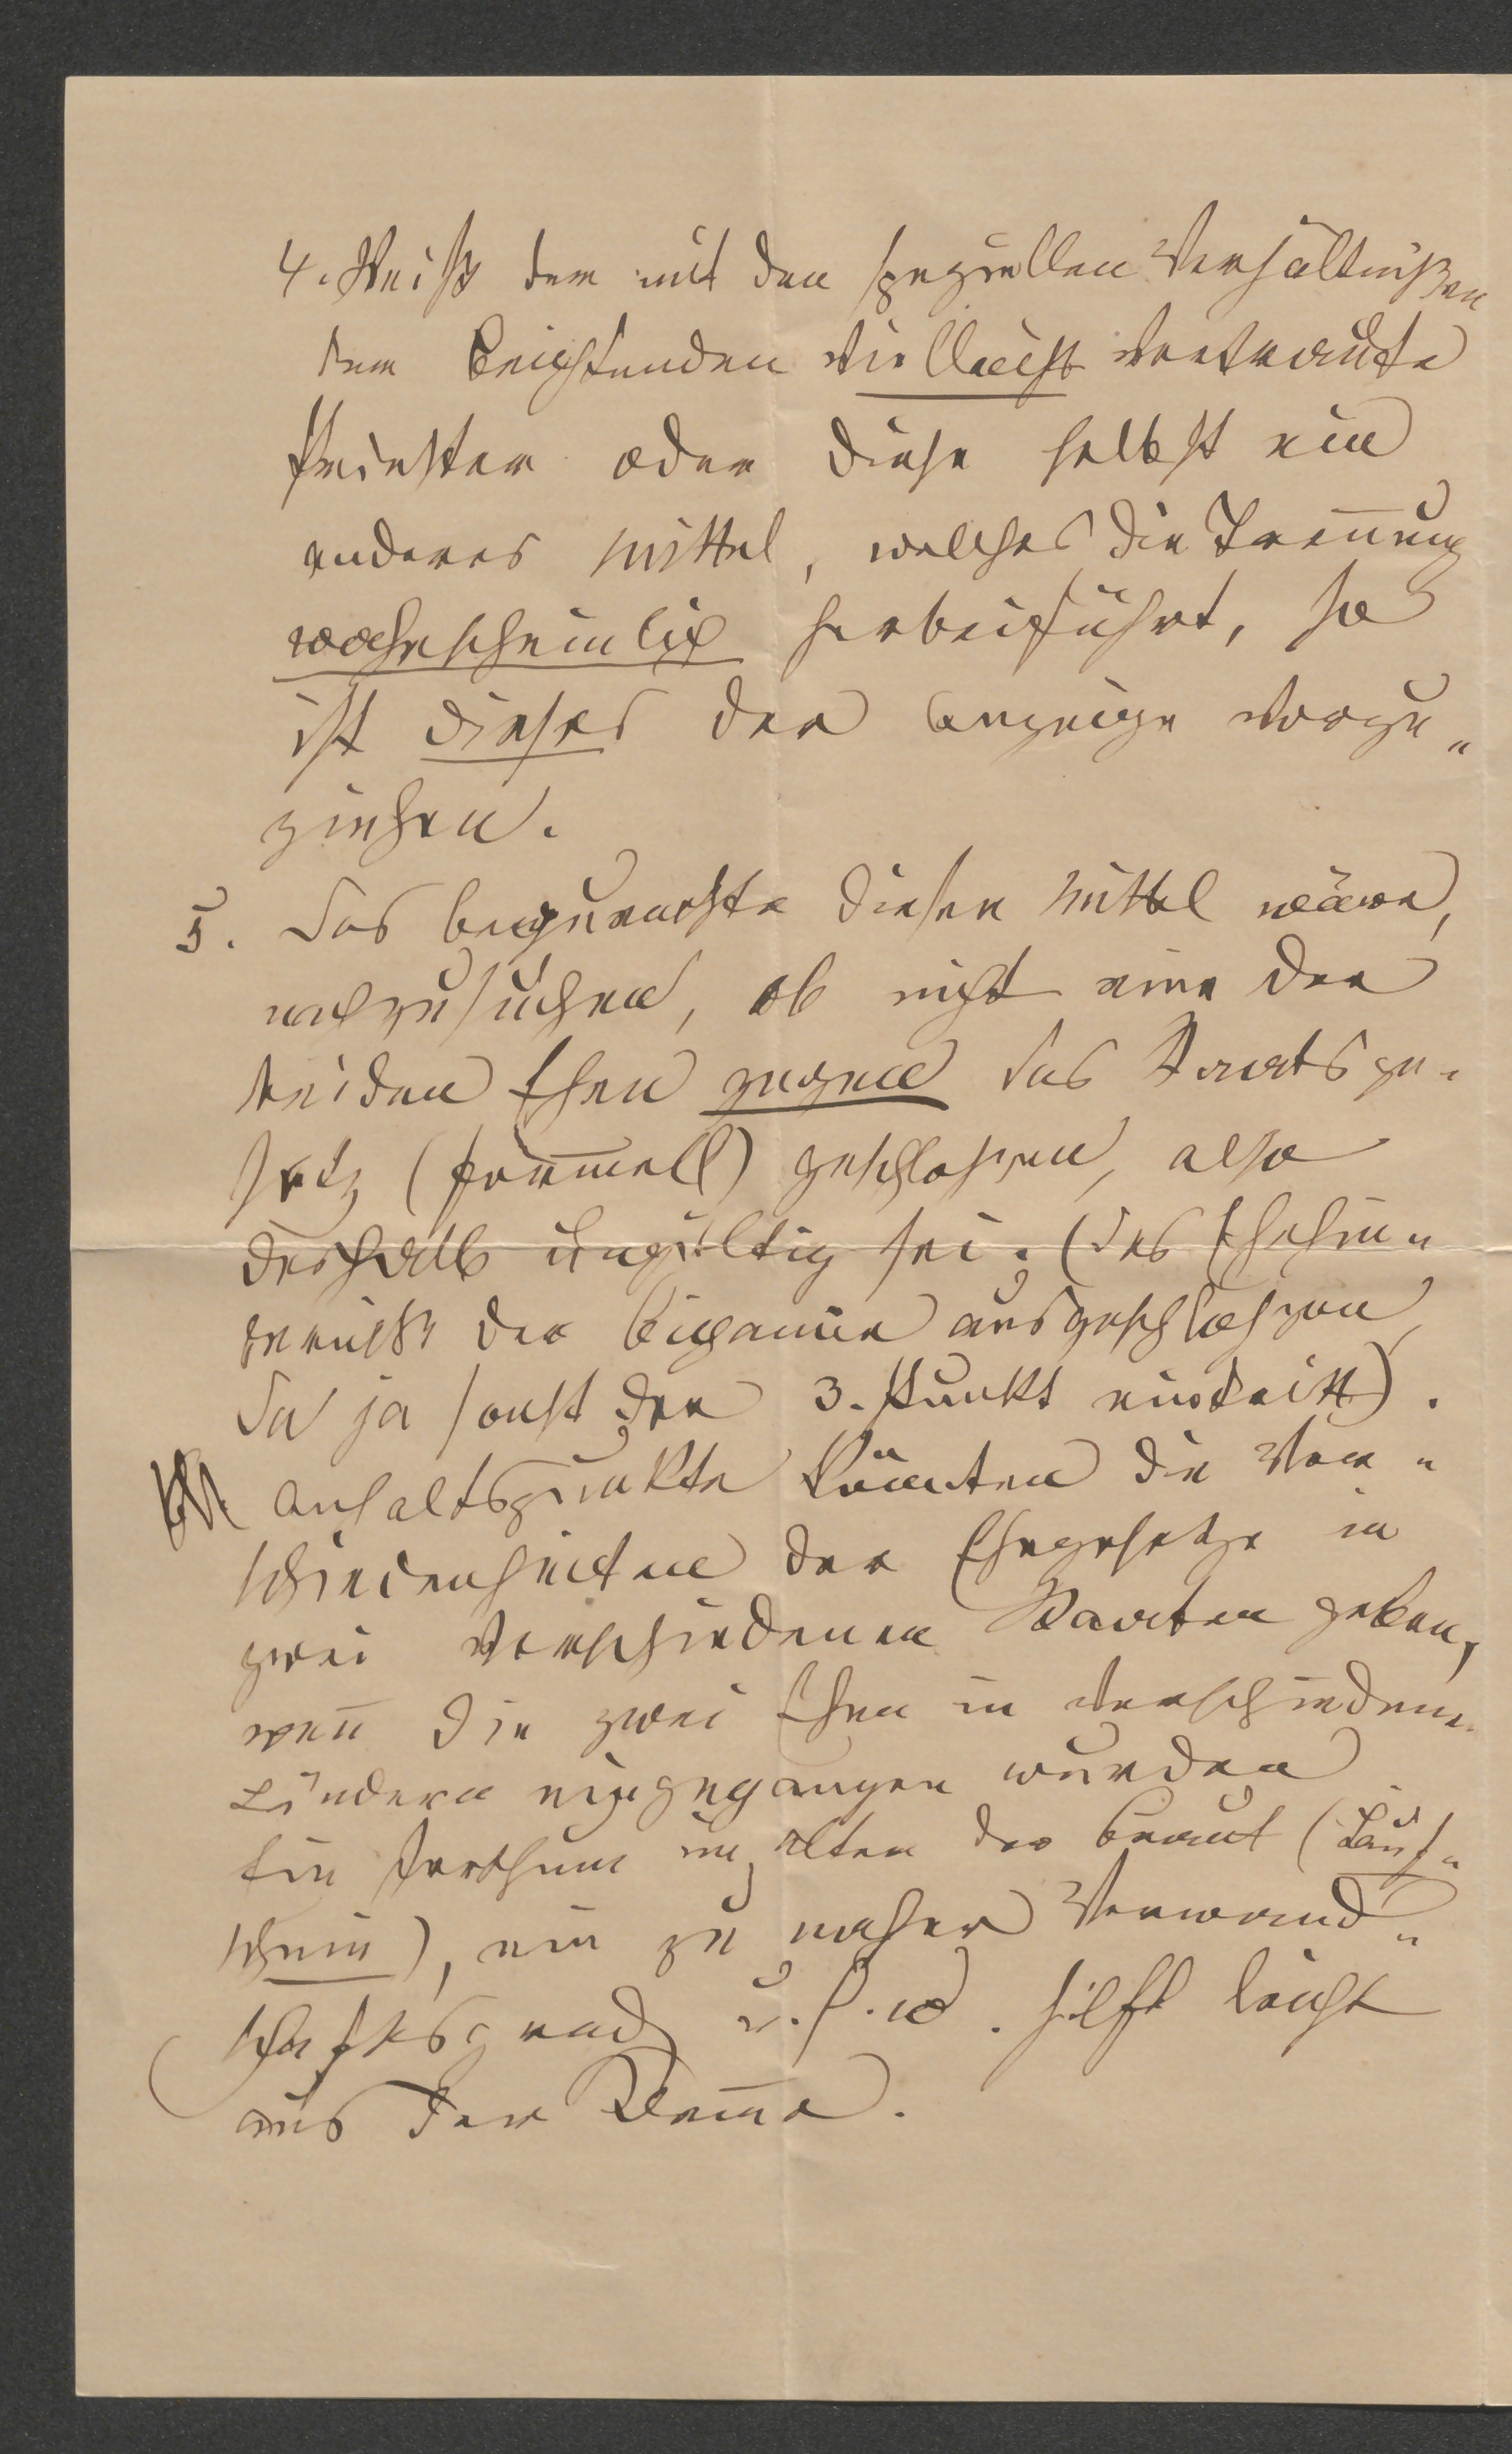 4. Weiß der mit den speziellen Verhältnißen
der Beichtenden vielleicht vertraute
Priester oder diese selbst ein
anderes Mittel, welches die Trennung
wahrscheinlich herbeiführt, so
ist dieses der Anzeige vorzu„
ziehen.
5. Das bequemste dieser Mittel wäre,
nachzusuchen, ob nicht eine der
beiden Ehen gegen das Staatsge„
setz (formell) geschlossen, also
deshalb ungültig sei. (Das Ehehin„
derniß der Bigamie ausgeschlossen,
da ja sonst der 3. Punkt eintritt).
Anhaltspunkte könnten die Ver„
schiedenheiten der Ehegesetze in
zwei verschiedenen Staaten geben,
wen̄ die zwei Ehen in verschiedene.
Ländern eingegangen wurden
Ein Irrthum im Alter der Braut (Tauf„
schein), ein zu naher Verwand„
schaftsgrad u. s. w. hilft leicht
aus der Klem̄e.